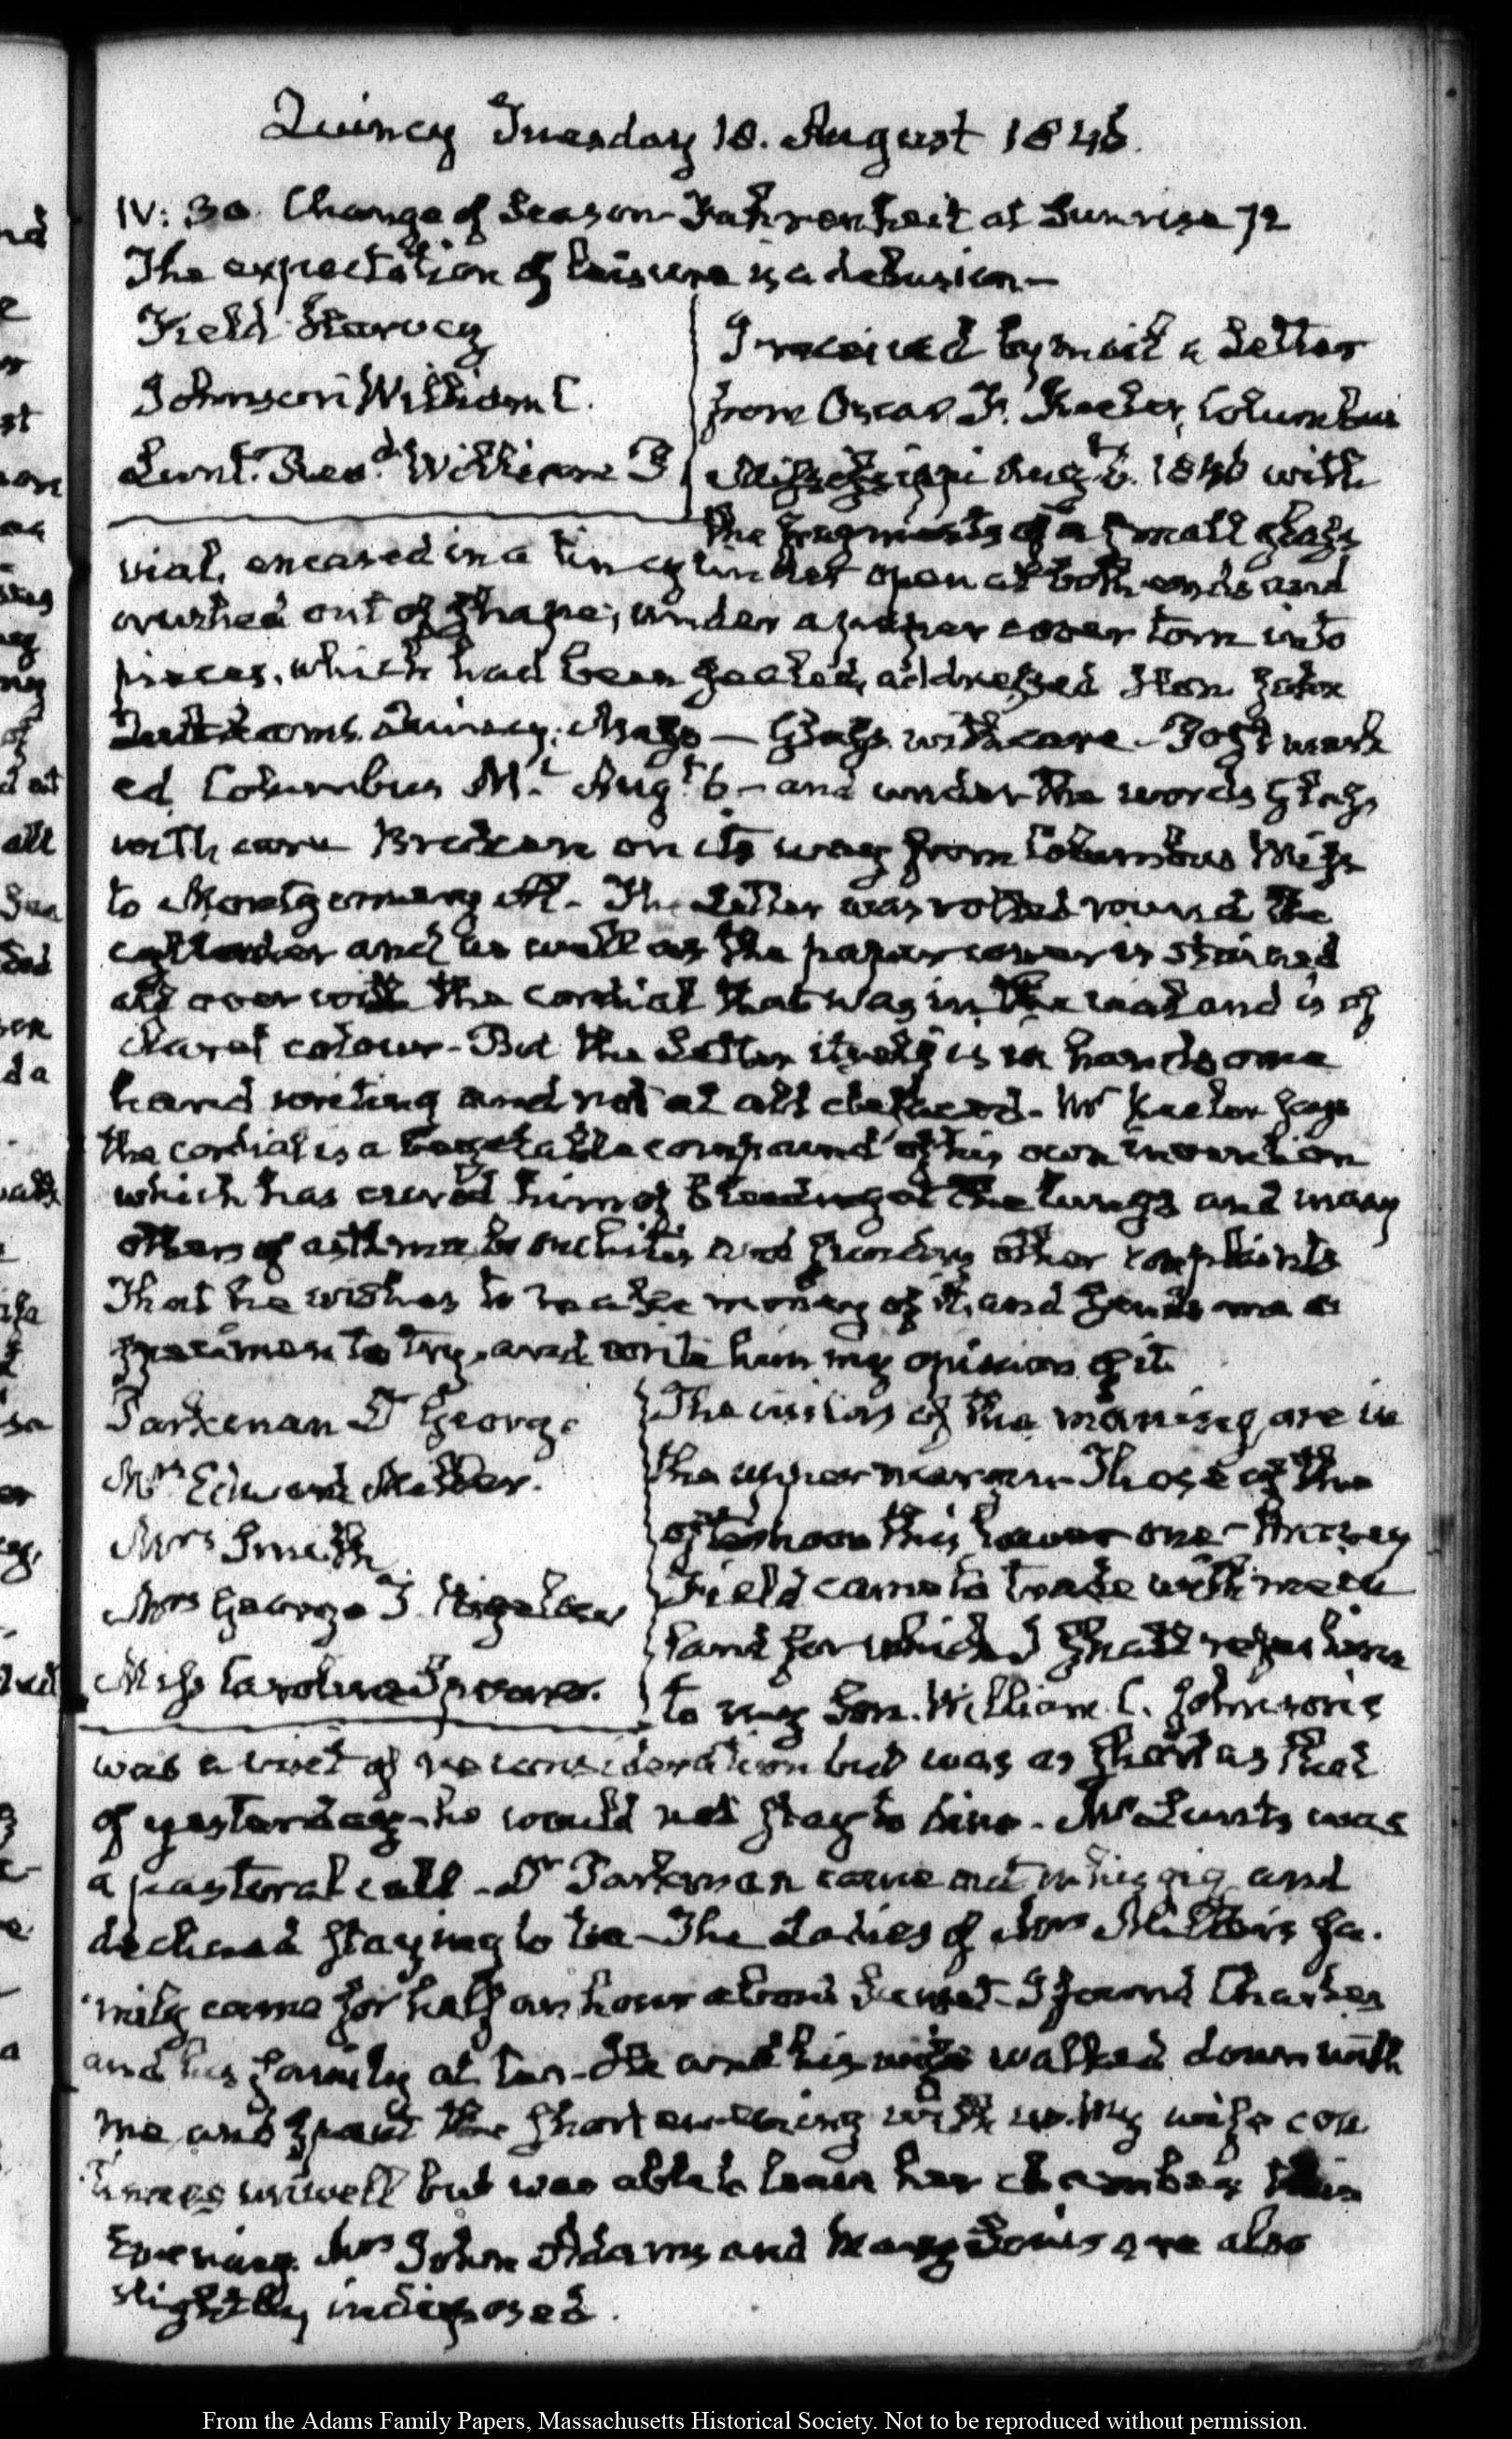 Quincy Tuesday 18. August 1846.
IV: 30. Change of Season Fahrenheit at Sunrise 72
The expectation of leisure is a delusion—
Field Harvey
Johnson William C.
Lunt. Revd. William P
I received by mail a Letter
from Oscar F. Keeler, Columbus
Mississippi Augt. 6. 1846 with
the fragments of a small glass
vial, encased in a tin cylinder open at both ends and
crushed out of shape; under a paper cover torn into
pieces, which had been sealed, addressed Hon John
Quincy, Mass— Glass with care—Post mark
ed Columbus Mi. Augt. 6—and under the words Glass
with care Broken on its way from Columbus Miss
to Montgomery Al. The Letter was rolled round the
cylinder and as well as the paper cover is stained
all over with the cordial that was in the vial and is of
claret colour—But the Letter itself is in handsome
hand writing and not at all defaced. Mr Keeler says
the cordial is a vegetable compound of his own invention
which has cured him of bleeding at the lungs and many
others of asthma bronchitis and sundry other complaints
That he wishes to make money of it, and sends me a
specimen to try, and write him my opinion of it
Parkman Dr George
Mrs Edward Miller.
Mrs Smith
Mrs George T.
Miss Caroline
The visitors of the morning are in
the upper margin—Those of the
afternoon this lower one—Harvey
Field came to trade with me
land for which I shall refer him
to my Son. William C. Johnson's
was a visit of reconsideration but was as short as that
of yesterday—he would not stay to dine—Mr Lunt's was
a pastoral call—Dr Parkman came out in his gig and
declined staying to tea—The Ladies of Mrs Miller's fa-
mily came for half an hour about Sunset—I found Charles
and his family at tea—He and his wife walked down with
me and spent the short evening with us. My wife con-
tinues unwell but was able to leave her chamber this
Evening. Mrs John Adams and Mary Louisa are also
slightly indisposed.
From the Adams Family Papers, Massachusetts Historical Society. Not to be reproduced without permission.